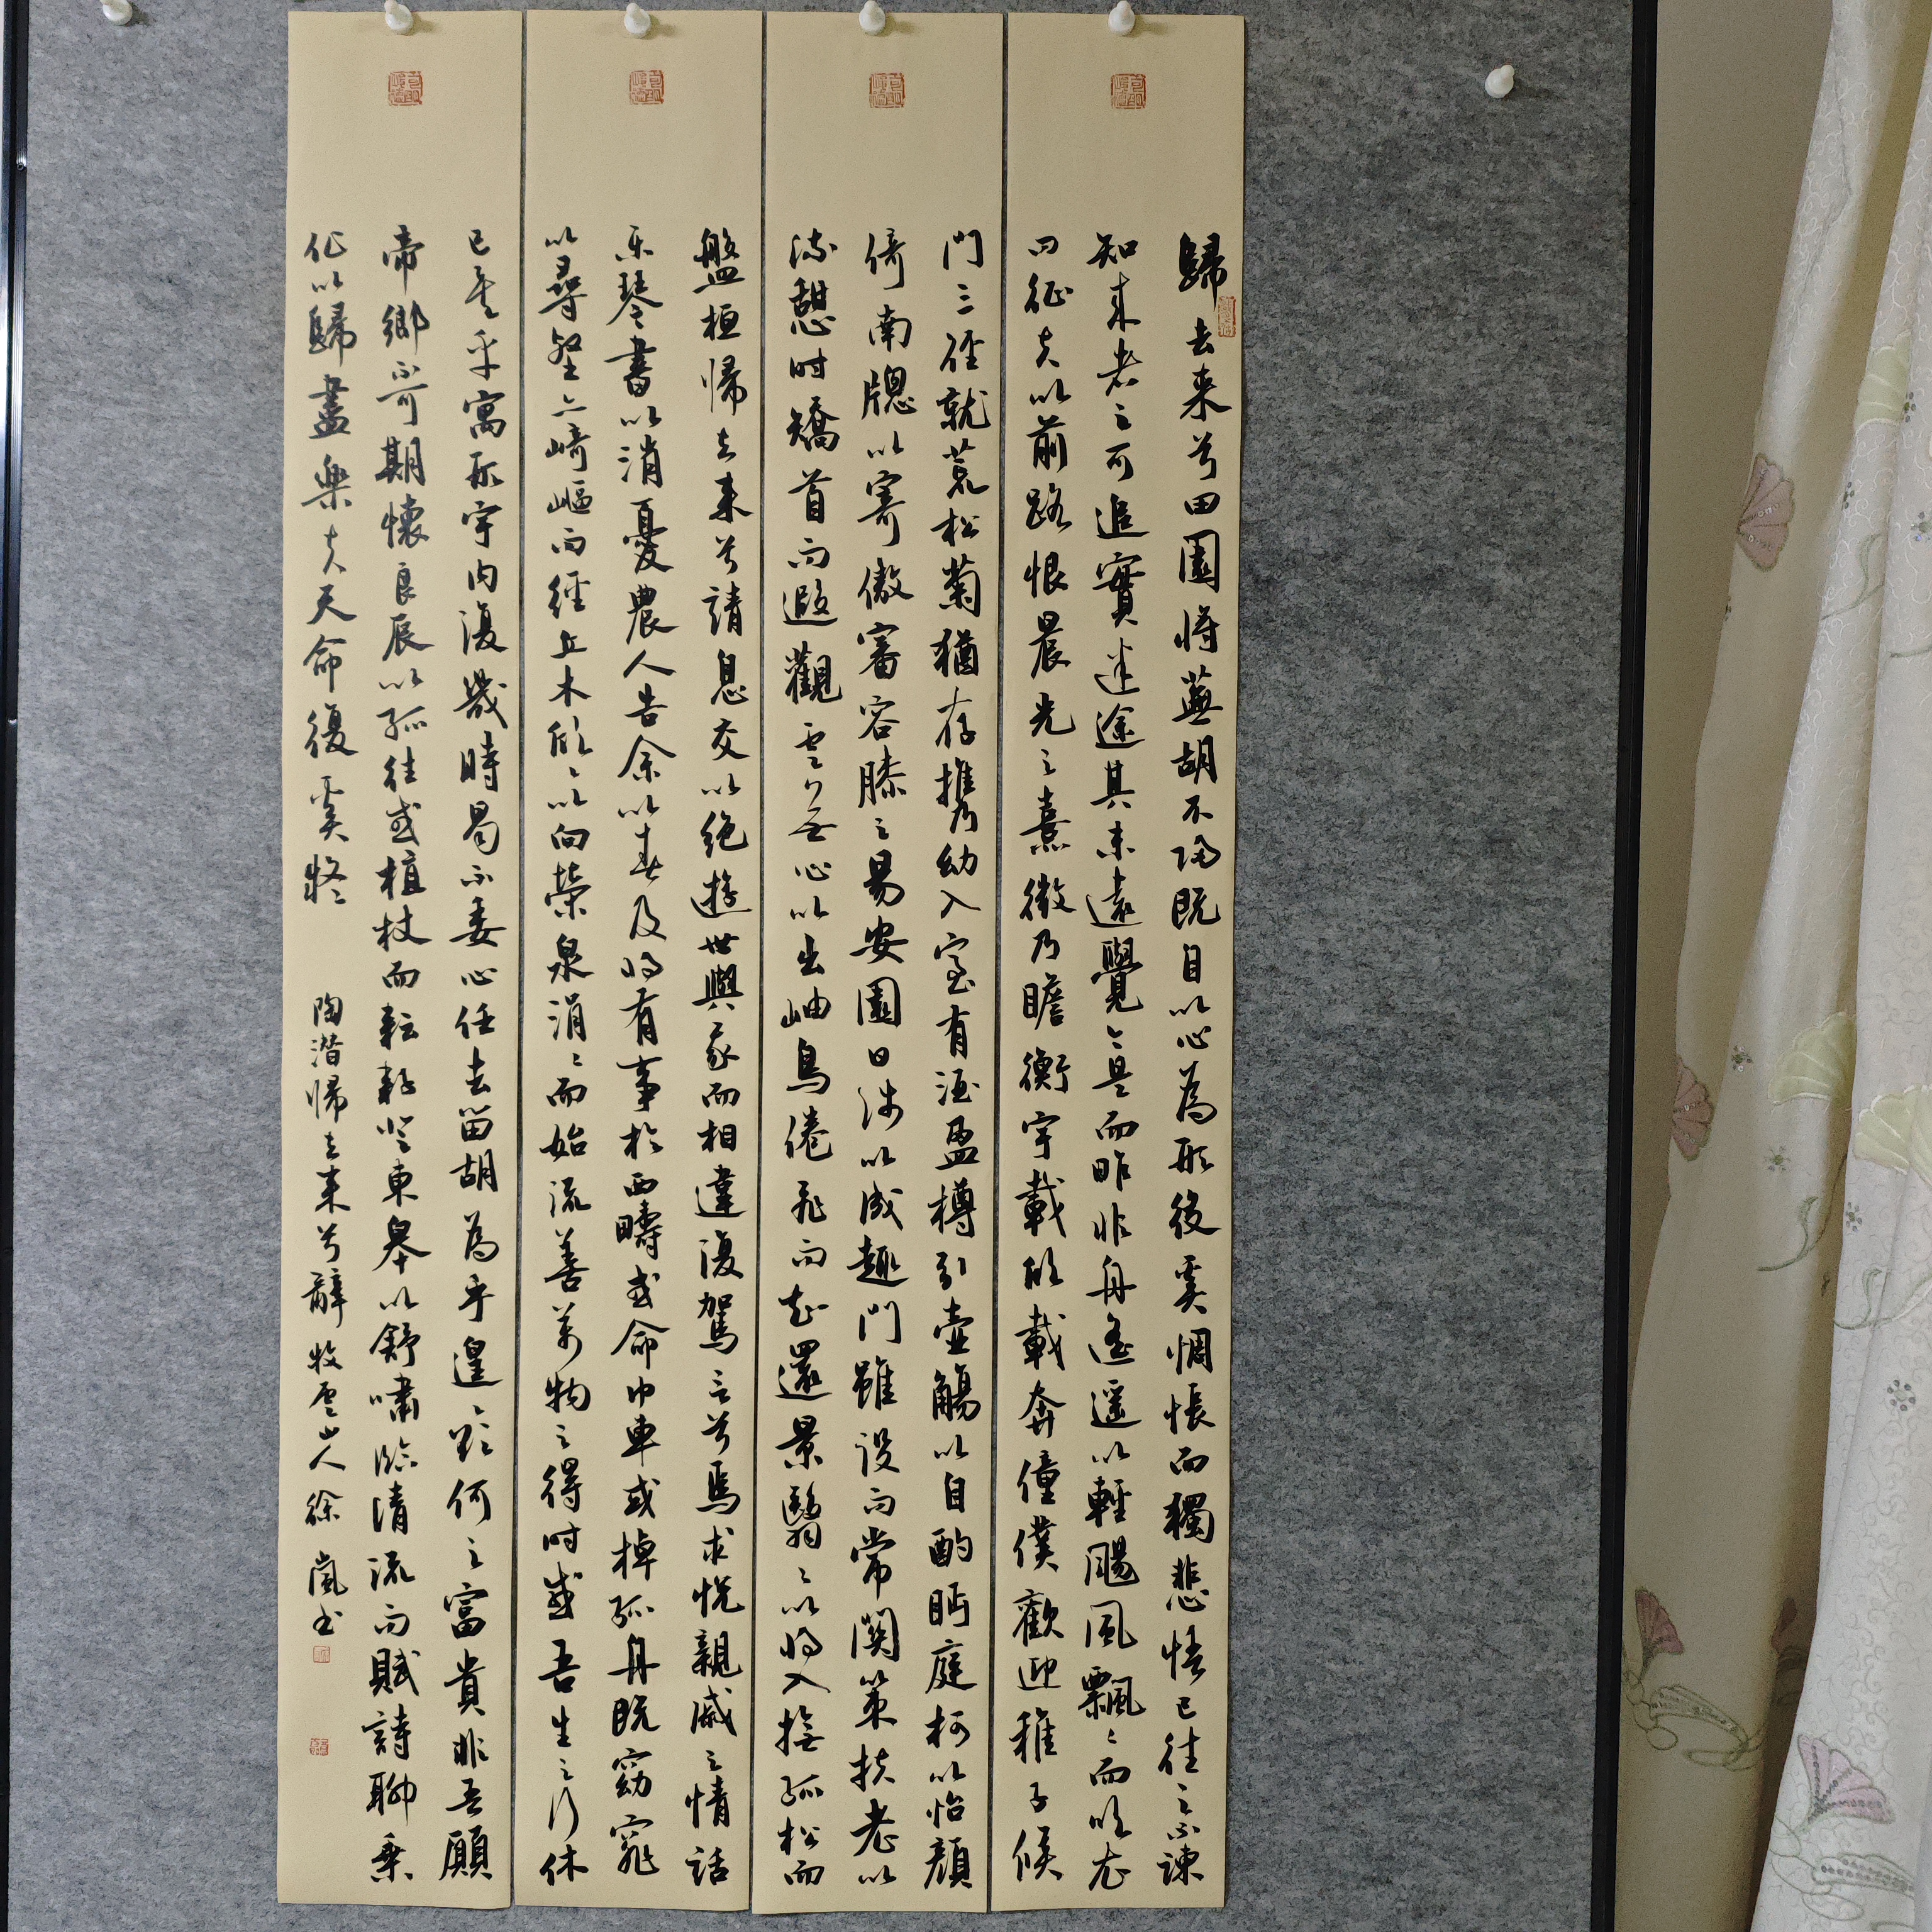 歸去来兮田園将蕪胡不归既自以心為形役奚惆悵而獨悲悟已往之不諫
知来者之可追實迷途其未遠覺今是而昨非舟遙遥以輕颺風飄〻而吹衣
问征夫以前路恨晨光之熹微乃瞻衡宇載欣載奔僮僕歡迎稚子候
門三徑就荒松菊猶存攜幼入室有酒盈樽引壺觴以自酌眄庭柯以怡顏
倚南牕以寄傲審容膝之易安園日涉以成趣門雖設而常関策扶老以
流憩时矯首而遐觀雲無心以出岫鳥倦飛而知還景翳〻以将入撫孤松而
盤桓帰去来兮請息交以絶遊世與我而相違復駕言兮焉求悅親戚之情話
乐琴書以消憂農人告余以春及将有事於西疇或命巾車或棹孤舟既窈窕
以尋壑亦崎嶇而經丘木欣〻以向榮泉涓〻而始流善萬物之得时感吾生之行休
已矣乎寓形宇内復幾時曷不委心任去留胡為乎遑〻欲何之富貴非吾願
帝鄉不可期懷良辰以孤往或植杖而耘耔登東皋以舒嘯臨清流而賦詩聊乘
化以歸盡樂夫天命復奚疑 陶潜帰去来兮辭 牧雲山人徐嵐书